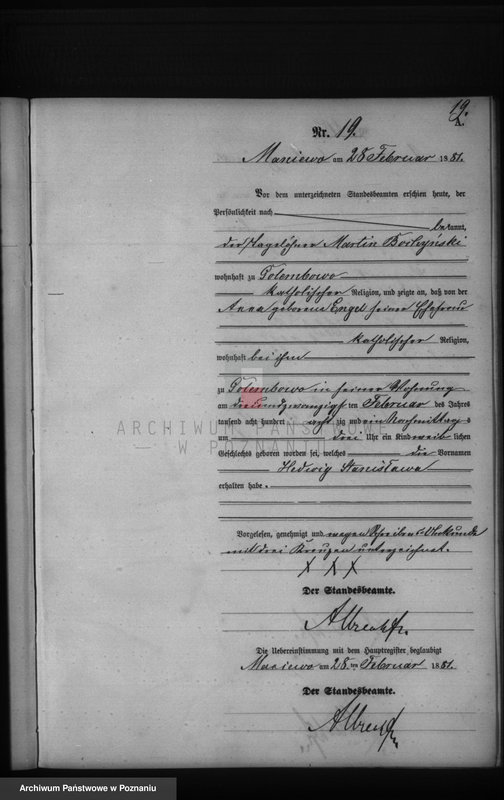 19.
A.
Nr. 19.
Maniewo am 28 Februar 1881.
Vor dem unterzeichneten Standesbeamten erschien heute, der
Persönlichkeit nach
bekannt,
der Tagelöhner Martin Borczyński
wohnhaft zu Golembowo
katholischer Religion, und zeigte an, daß von der
Anna geborene Engel seiner Ehefrau
katholischer Religion,
wohnhaft bei ihm
zu Golembowo in seiner Wohnung
am dreiundzwanzigsten Februar des Jahres
tausend acht hundert achtzig und ein Nachmittags
um drei Uhr ein Kind weiblichen
Geschlechts geboren worden sei, welches die Vornamen
Hedwig Stanisława
erhalten habe.
Vorgelesen, genehmigt und wegen Schreibens Unkunde
mit drei Kreuzen unterzeichnet.
X X X
Der Standesbeamte.
Albrecht
Die Uebereinstimmung mit dem Hauptregister beglaubigt
Maniewo am 28ten Februar 1881.
Der Standesbeamte.
Albrecht
ARCHIWUM PAŃSTWOWE
W POZNANIU
Archiwum Państwowe w Poznaniu